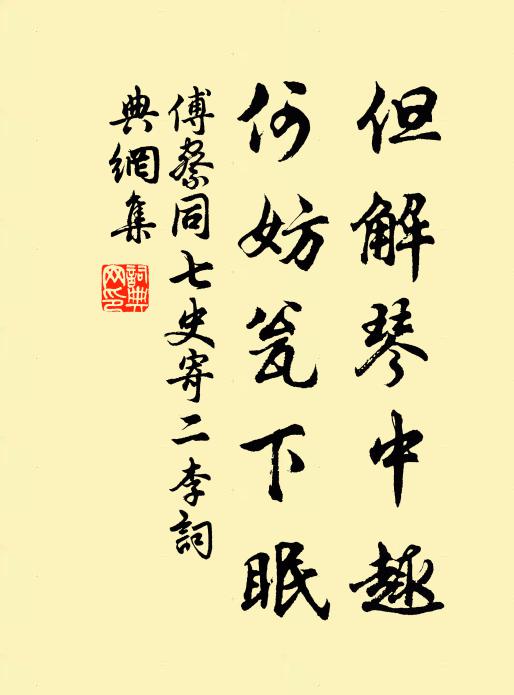 但解琴中趣
何妨瓮下眠
傅察同七史寄二李詞
典網集
詞典網印